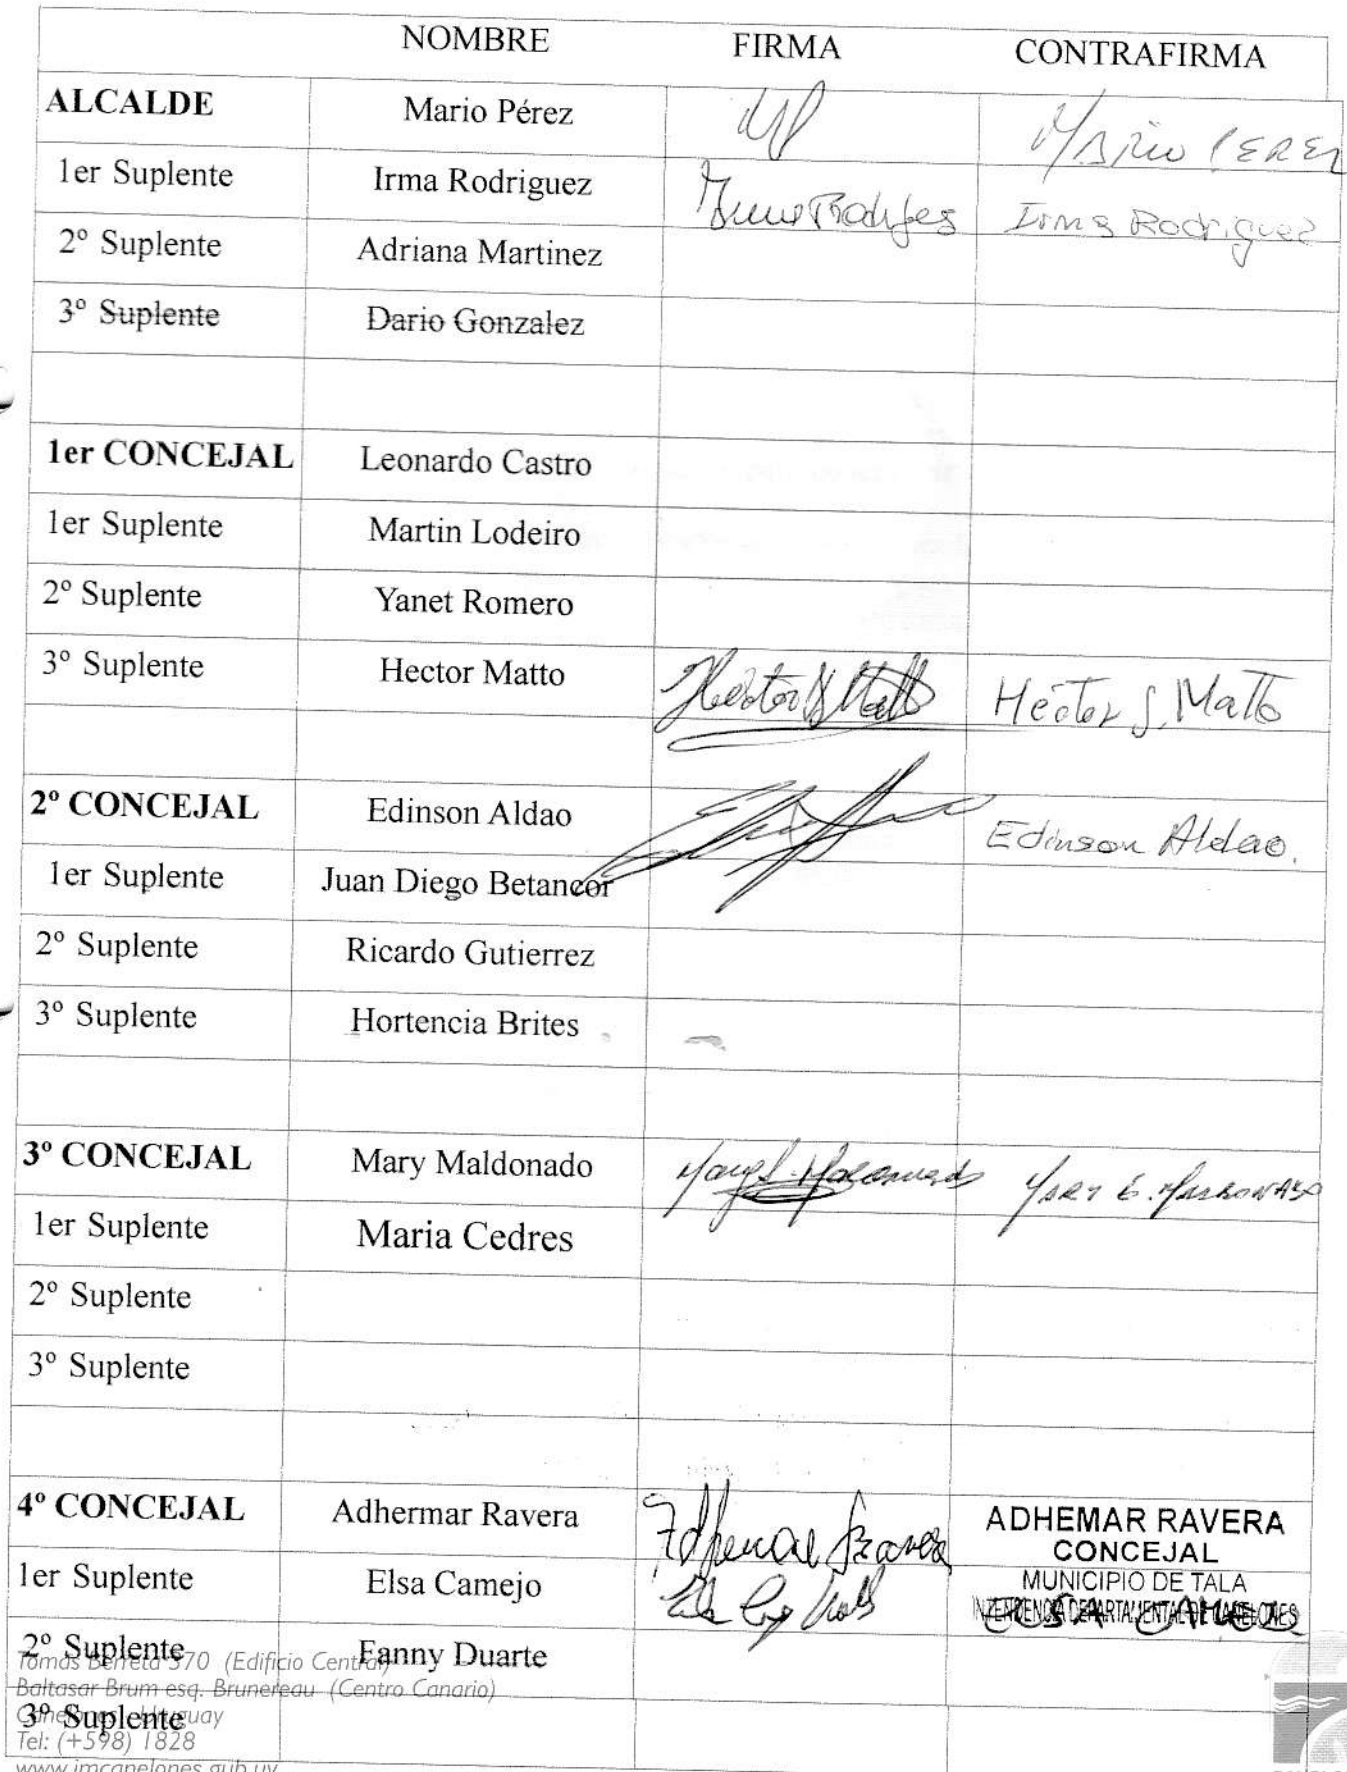 NOMBRE FIRMA CONTRAFIRMA
ALCALDE Mario Pérez MP Mario PEREZ
1er Suplente Irma Rodriguez Irma Rodriguez Irma Rodriguez
2º Suplente Adriana Martinez
3º Suplente Dario Gonzalez
1er CONCEJAL Leonardo Castro
1er Suplente Martin Lodeiro
2º Suplente Yanet Romero
3º Suplente Hector Matto Hector S Matto Héctor S. Matto
2º CONCEJAL Edinson Aldao Edinson Aldao.
1er Suplente Juan Diego Betancor
2º Suplente Ricardo Gutierrez
3º Suplente Hortencia Brites
3º CONCEJAL Mary Maldonado Mary E. Maldonado MARY E. MALDONADO
1er Suplente Maria Cedres
2º Suplente
3º Suplente
4º CONCEJAL Adhermar Ravera Adhemar Ravera ADHEMAR RAVERA
CONCEJAL
1er Suplente Elsa Camejo MUNICIPIO DE TALA
INTENDENCIA DEPARTAMENTAL DE CANELONES
ELSA CAMEJO
2º Suplente Fanny Duarte
Tomás Berreta 370 (Edificio Central)
Baltasar Brum esq. Brunereau (Centro Canario)
3º Suplente
Canelones - Uruguay
Tel: (+598) 1828
www.imcanelones.gub.uy